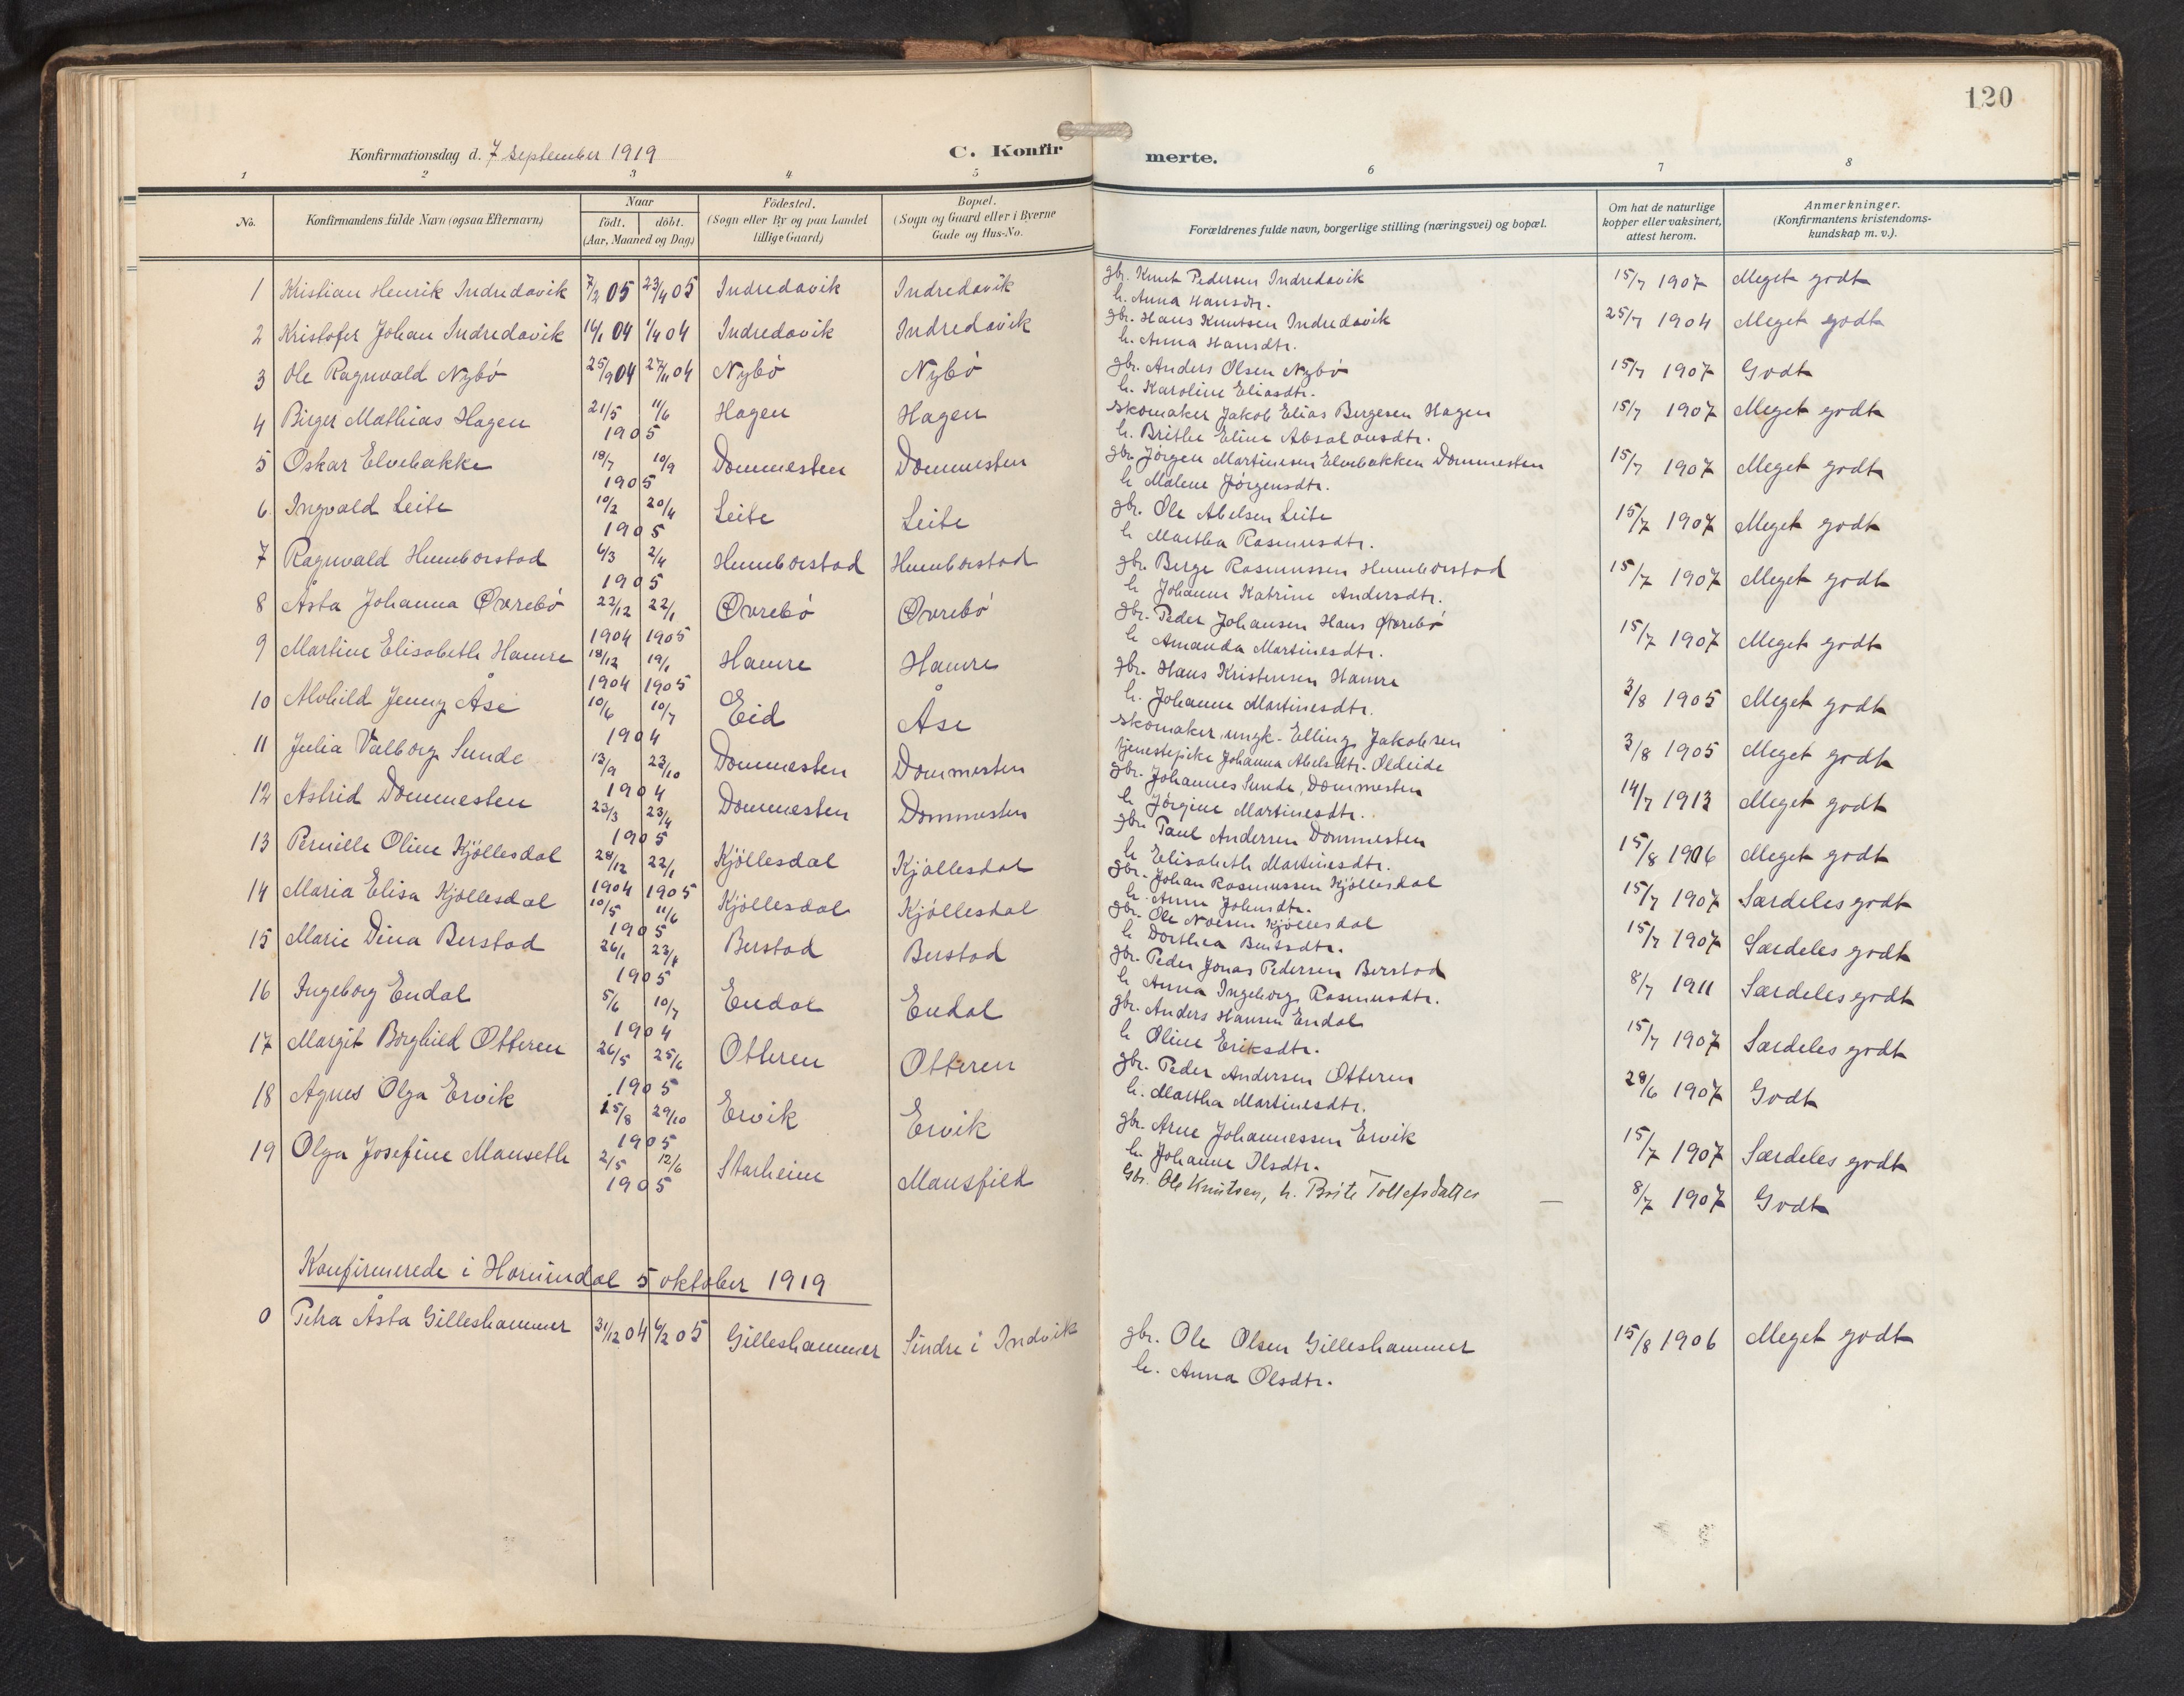 120
Konfirmationsdag d. 7 September 1919
C. Konfirmerte.
1 2 3 4 5 6 7 8
No.
Konfirmandens fulde Navn (ogsaa Efternavn)
Naar
födt. döbt.
(Aar, Maaned og Dag)
Födested.
(Sogn eller By og paa Landet
tillige Gaard)
Bopæl.
(Sogn og Gaard eller i Byerne
Gade og Hus-No.
Forældrenes fulde navn, borgerlige stilling (næringsvei) og bopæl.
Om hat de naturlige
kopper eller vaksinert,
attest herom.
Anmerkninger.
(Konfirmantens kristendoms-
kundskap m. v.).
1 Kristian Henrik Indredavik 7/2 05 23/4 05 Indredavik Indredavik gbr. Knut Pedersen Indredavik 15/7 1907 Meget godt
h. Anna Hansdtr.
2 Kristofer Johan Indredavik 16/1 04 1/4 04 Indredavik Indredavik gbr. Hans Knutsen Indredavik 25/7 1904 Meget godt
h. Anna Hansdtr.
3 Ole Ragnvald Nybö 25/9 04 27/11 04 Nybö Nybö gbr. Anders Olsen Nybö 15/7 1907 Godt
h. Karoline Eliasdtr.
4 Birger Mathias Hagen 21/5 11/6 1905 Hagen Hagen Skomaker Jakob Elias Bergesen Hagen 15/7 1907 Meget godt
h. Brithe Eline Absalonsdtr.
5 Oskar Elvebakke 18/7 10/9 1905 Dommesten Dommesten gbr. Jörgen Martinesen Elvebakken Dommesten 15/7 1907 Meget godt
h Malene Jörgensdtr.
6 Ingvald Leite 10/2 20/4 1905 Leite Leite gbr. Ole Abelsen Leite 15/7 1907 Meget godt
h Martha Rasmusdtr.
7 Ragnvald Humborstad 6/3 2/4 1905 Humborstad Humborstad gbr. Berge Rasmussen Humborstad 15/7 1907 Meget godt
h Johanne Katrine Andersdtr.
8 Åsta Johanna Øvrebö 22/12 1904 22/1 1905 Øvrebö Øvrebö gbr. Peder Johansen Hans Øvrebö 15/7 1907 Meget godt
h Amanda Martinesdtr.
9 Martine Elisabeth Hamre 18/12 1904 19/1 1905 Hamre Hamre gbr. Hans Kristensen Hamre 3/8 1905 Meget godt
h. Johanne Martinesdtr.
10 Alvhild Jenny Åse 10/6 10/7 1904 Eid Åse Skomaker, ungk. Elling Jakobsen 3/8 1905 Meget godt
tjenestepike Johanna Abelsdtr. Oldeide
11 Julia Valborg Sunde 13/9 23/10 1904 Dommesten Dommesten gbr. Johannes Sunde, Dommesten 14/7 1913 Meget godt
h Jörgine Martinesdtr.
12 Astrid Dommesten 23/3 23/4 1905 Dommesten Dommesten gbr. Paul Andersen Dommesten 15/8 1906 Meget godt
h Elisabeth Martinesdtr.
13 Pernille Oline Kjöllesdal 28/12 1904 22/1 1905 Kjöllesdal Kjöllesdal gbr. Johan Rasmussen Kjöllesdal 15/7 1907 Særdeles godt
h. Anne Johnsdtr.
14 Maria Elisa Kjöllesdal 10/5 11/6 1905 Kjöllesdal Kjöllesdal gbr. Ole Kjöllesdal 15/7 1907 Særdeles godt
h Dorthea Bentsdtr.
15 Marie Dina Berstad 26/1 23/4 1905 Berstad Berstad gbr. Peder Jonas Pedersen Berstad 8/7 1911 Særdeles godt
h Anna Ingeborg Rasmusdtr.
16 Ingeborg Endal 5/6 10/7 1904 Endal Endal gbr. Anders Hansen Endal 15/7 1907 Særdeles godt
h Oline Eriksdtr.
17 Margit Borghild Otteren 26/5 25/6 1905 Otteren Otteren gbr. Peder Andersen Otteren 28/6 1907 Godt
h. Martha Martinesdtr.
18 Agnes Olga Ervik 25/8 29/10 1905 Ervik Ervik gbr. Arne Johannessen Ervik 15/7 1907 Særdeles godt
h. Johanne Olsdtr.
19 Olga Josefine Mauseth 2/5 12/6 1905 Starheim Mausfield Gbr. Ole Knutsen, h. Brite Tollefsdatter — 8/7 1907 Godt
Konfirmerede i Hornindal 5 oktober 1919
0 Petra Åsta Gilleshammer 31/12 04 6/2 05 Gilleshammer Sindre i Indvik gbr. Ole Olsen Gilleshammer 15/8 1906 Meget godt
h. Anna Olsdtr.